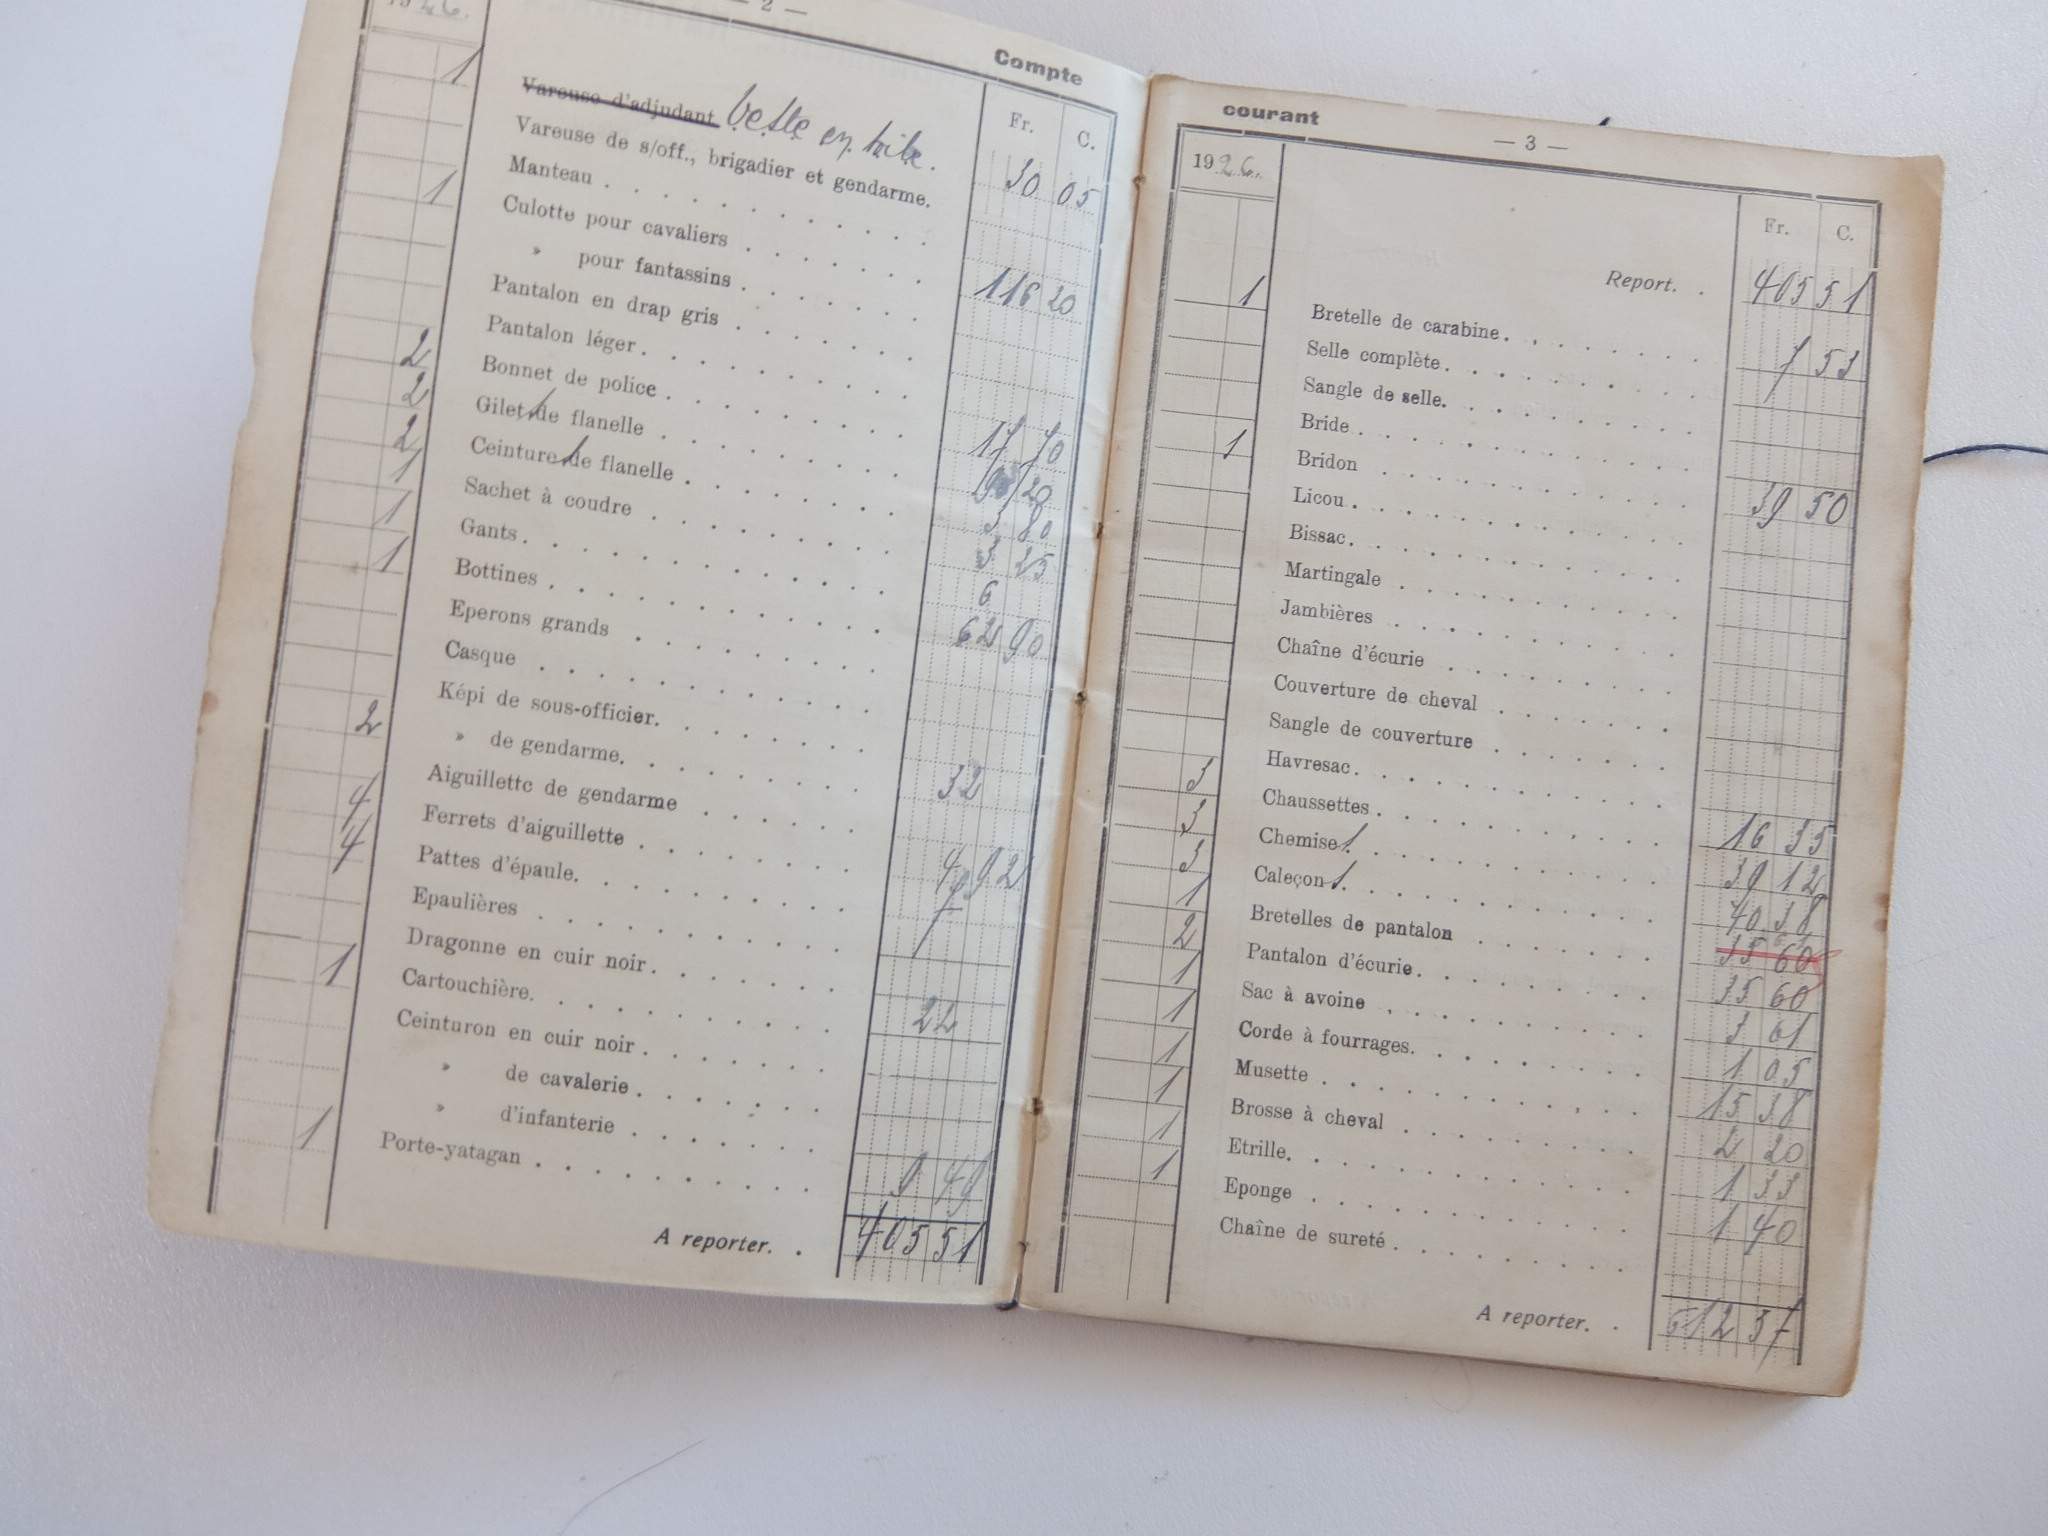 1926.
— 2 —
Compte
Fr. C.
1 Vareuse d'adjudant veste en toile. 30 05
Vareuse de s/off., brigadier et gendarme.
Manteau
1 Culotte pour cavaliers 116 20
» pour fantassins
Pantalon en drap gris
Pantalon léger
2 Bonnet de police 17 70
2 Gilets de flanelle 90 20
2 Ceintures de flanelle 3 80
1 Sachet à coudre 3 25
1 Gants 6
1 Bottines 62 90
Eperons grands
Casque
Képi de sous-officier.
2 » de gendarme. 32
Aiguillette de gendarme
4 Ferrets d'aiguillette 4 92
4 Pattes d'épaule. 7
Epaulières
Dragonne en cuir noir
1 Cartouchière. 22
Ceinturon en cuir noir
» de cavalerie
» d'infanterie
1 Porte-yatagan 9 49
A reporter. 405 51
courant
— 3 —
1926.
Fr. C.
Report. 405 51
1 Bretelle de carabine 7 53
Selle complète
Sangle de selle.
Bride
1 Bridon 39 50
Licou
Bissac
Martingale
Jambières
Chaîne d'écurie
Couverture de cheval
Sangle de couverture
Havresac
3 Chaussettes 16 35
3 Chemises 39 12
3 Caleçons 40 38
1 Bretelles de pantalon 35 60
2 Pantalon d'écurie 35 60
1 Sac à avoine 3 61
1 Corde à fourrages. 1 05
1 Musette 15 38
1 Brosse à cheval 2 20
1 Etrille. 1 33
1 Eponge 1 40
Chaîne de sureté
A reporter. 612 37